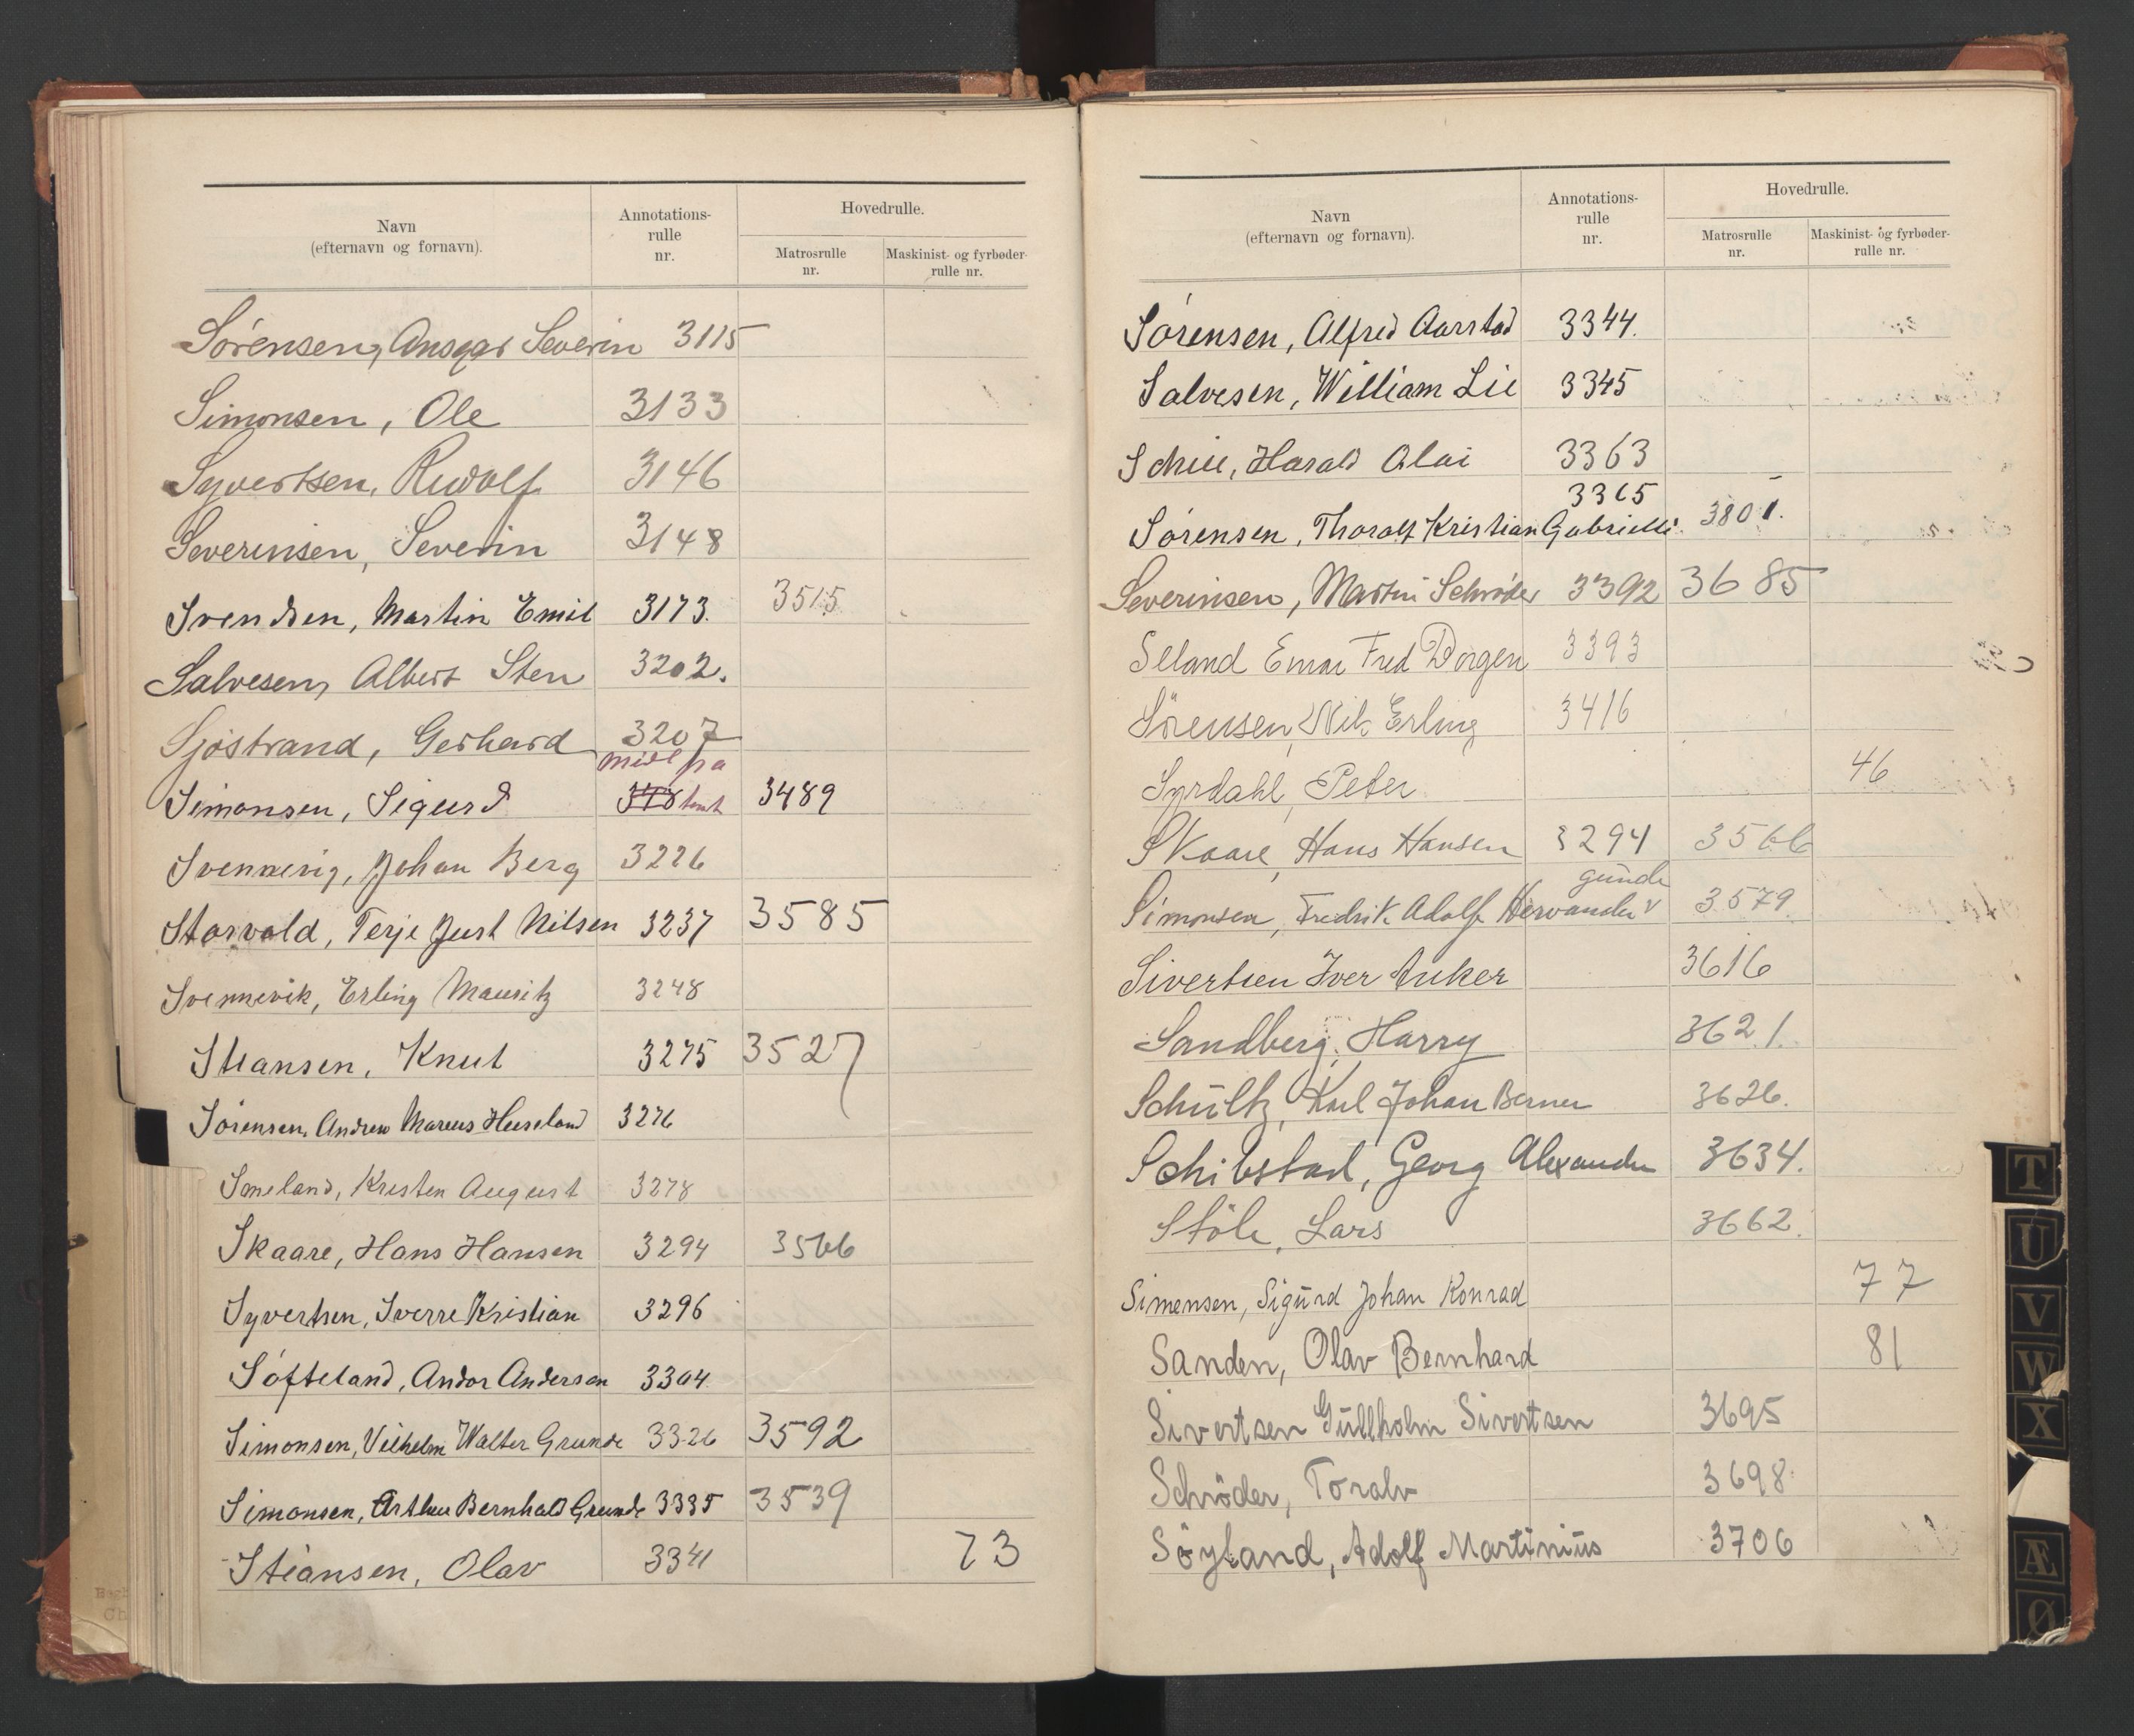 Navn
(efternavn og fornavn).
Annotations-
rulle
nr.
Hovedrulle.
Matrosrulle
nr.
Maskinist- og fyrbøder-
rulle nr.
Sörensen, Ansgar Severin 3115
Simonsen, Ole 3133
Syvertsen, Rudolf 3146
Severinsen, Severin 3148
Svendsen, Martin Emil 3173. 3515
Salvesen, Albert Sten 3202.
Sjöstrand, Gerhard 3207
Simonsen, Sigurd 3489
Svennevig, Johan Berg 3226
Storvold, Terje Just Nilsen 3237 3585
Svennevik, Erling Mauritz 3248
Stiansen, Knut 3275 3527
Sörensen, Andrew Marcus Huseland 3276
Smeland, Kristen August 3278
Skaare, Hans Hansen 3294 3566
Syvertsen, Sverre Kristian 3296
Söfteland, Andor Anderson 3304
Simonsen, Vilhelm Walter Grunde 3326 3592
Simonsen, Arthur Bernhard Grunde 3335 3539
Stiansen, Olav 3341 73
Navn
(efternavn og fornavn).
Annotations-
rulle
nr.
Hovedrulle.
Matrosrulle
nr.
Maskinist- og fyrbøder-
rulle nr.
Sörensen, Alfred Aarstad 3344.
Salvesen, William Lie 3345
Schie, Harald Olai 3363
3365
Sörensen, Thoralf Kristian Gabrielli 3801.
Severinsen, Martin Schröder 3392 3685
Seland Einar Fred Dorgen 3393
Sörensen, Nik Erling 3416
Syrdahl, Peter 46
Skaare, Hans Hansen 3294 3566
Simonsen, Fredrik Adolf 3579
Sivertsen Iver Anker 3616
Sandberg, Harry 3621.
Schültz, Karl Johan Berner 3626.
Schibstad, Georg Alexander 3634.
Stöle, Lars 3662.
Simensen, Sigurd Johan Konrad 77
Sanden, Olav Bernhard 81
Sivertsen Gullholm Sivertsen 3695
Schröder, Toralv 3698
Söyland, Adolf Martinius 3706
T
U
V
W
X
Æ
Ø